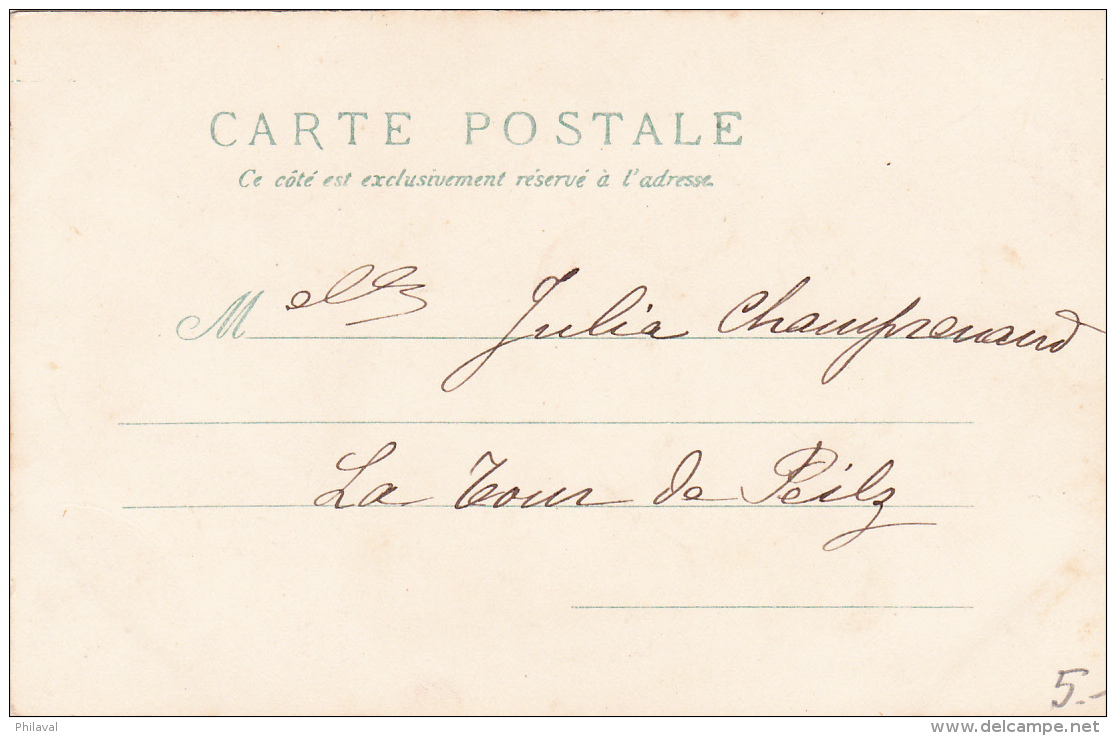 CARTE POSTALE
Ce côté est exclusivement réservé à l'adresse.
Melle Julia Champrenaud
La Tour de Peilz
5.-
Philaval
www.delcampe.net